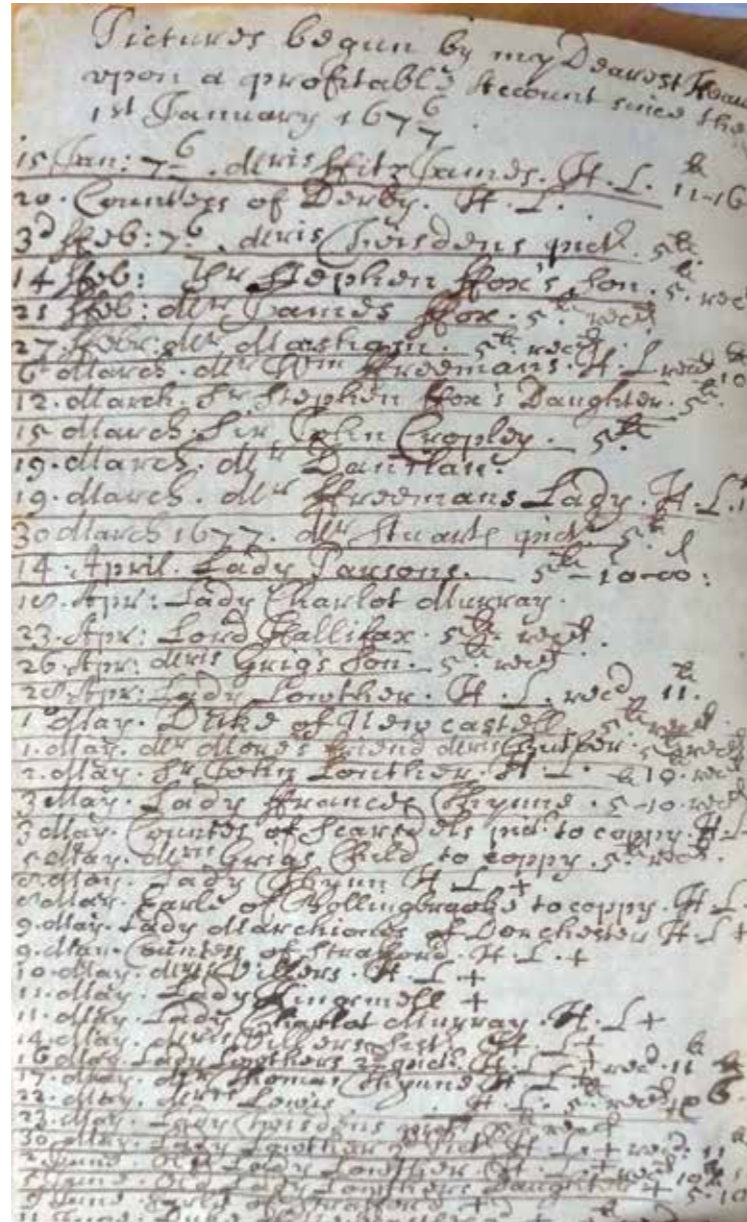 Pictures begun by my Dearest Hear
upon a profitable Account since the
1st January 167 6/7
15 Jan: 7 6/7. Mris Fitz James. H. L. li 11-16
20. Countess of Derby. H. L.
3d ffeb: 7 6. Mris pict. 5li
14 ffeb: Sr Stephen ffox's son. 5li. recd
21 ffeb: Mr James ffox. 5li recd
27 ffebr: Mr 5li. recd
6 March. Mr Wm ffreemans. H. L recd li 10
12. March. Sr Stephen ffox's Daughter. 5li.
15 March. Sir John Cropley. 5li
19. March. Mr
19. March. Mr ffreemans Lady. H. L.
30 March 1677. Mr Stuarts pict. 5li
14. April. Lady Parsons. 5li - 10-00:
18. Apr: Lady Charlot Murray.
23. Apr: Lord Hallifax. 5li. recd.
26 Apr: Mris Grigs son. 5li. recd
28 Apr: Lady Lowther. H. L. recd 11li.
1 May. Duke of Newcastell. 5li recd
1. May. Mr Mores friend Mris 5li recd
2. May. Sr John Lowther. H. L. li 10. recd
3 May. Lady ffrances Thynne. 5-10. recd
3 May. Countes of Scarsdels pict. to coppy. H. L
5 May. Mris Grigs Child to coppy. 5li recd.
8 May. Lady Thynn H L +
8 May. Earle of Bollingbrooke to coppy. H L.
9. May. Lady Marchiones of Dorchester H. L +
9. May. Countes of Strafford. H. L. +
10. May. Mris Villers. H. L +
11. May. Lady Kingsmell +
11. May. Lady Charlot Murray. H. L +
14. May. Mris Villers H. L +
16 May. Lady Lowthers 2d pict. H. L + recd. 11li
17. May. Mr Thomas Thynne H. L.
22. May. Mris Lewis. H. L.
23. May. Lady pict.
30. May. Lady Lowther pict H. L. + recd. 11
June. Old Lady Lowther H. L. + recd
June. Old Lady Lowthers Daughter + 5-10
June. Earle of Strafford +
11 June. Duke